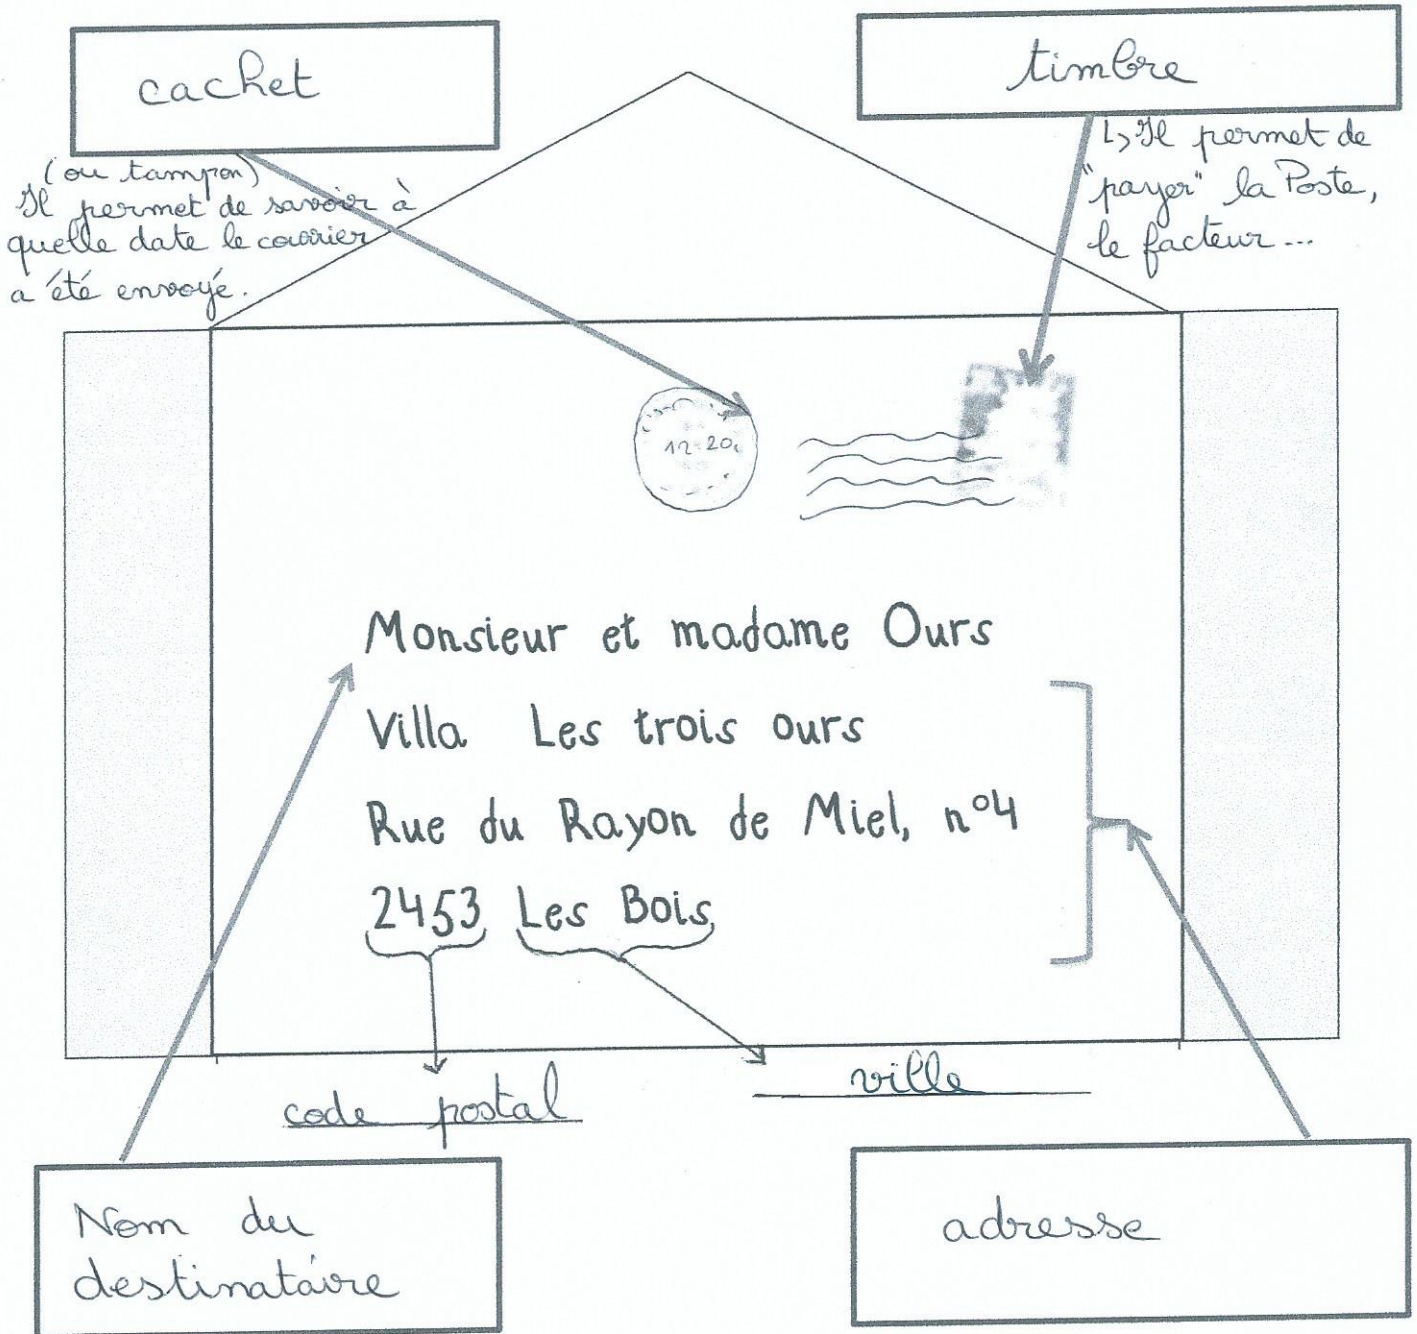 cachet
(ou tampon)
Il permet de savoir à
quelle date le courrier
a été envoyé.
timbre
↳ Il permet de
"payer" la Poste,
le facteur...
12-20
Monsieur et madame Ours
Villa Les trois ours
Rue du Rayon de Miel, n°4
2453 Les Bois
code postal
ville
Nom du
destinataire
adresse